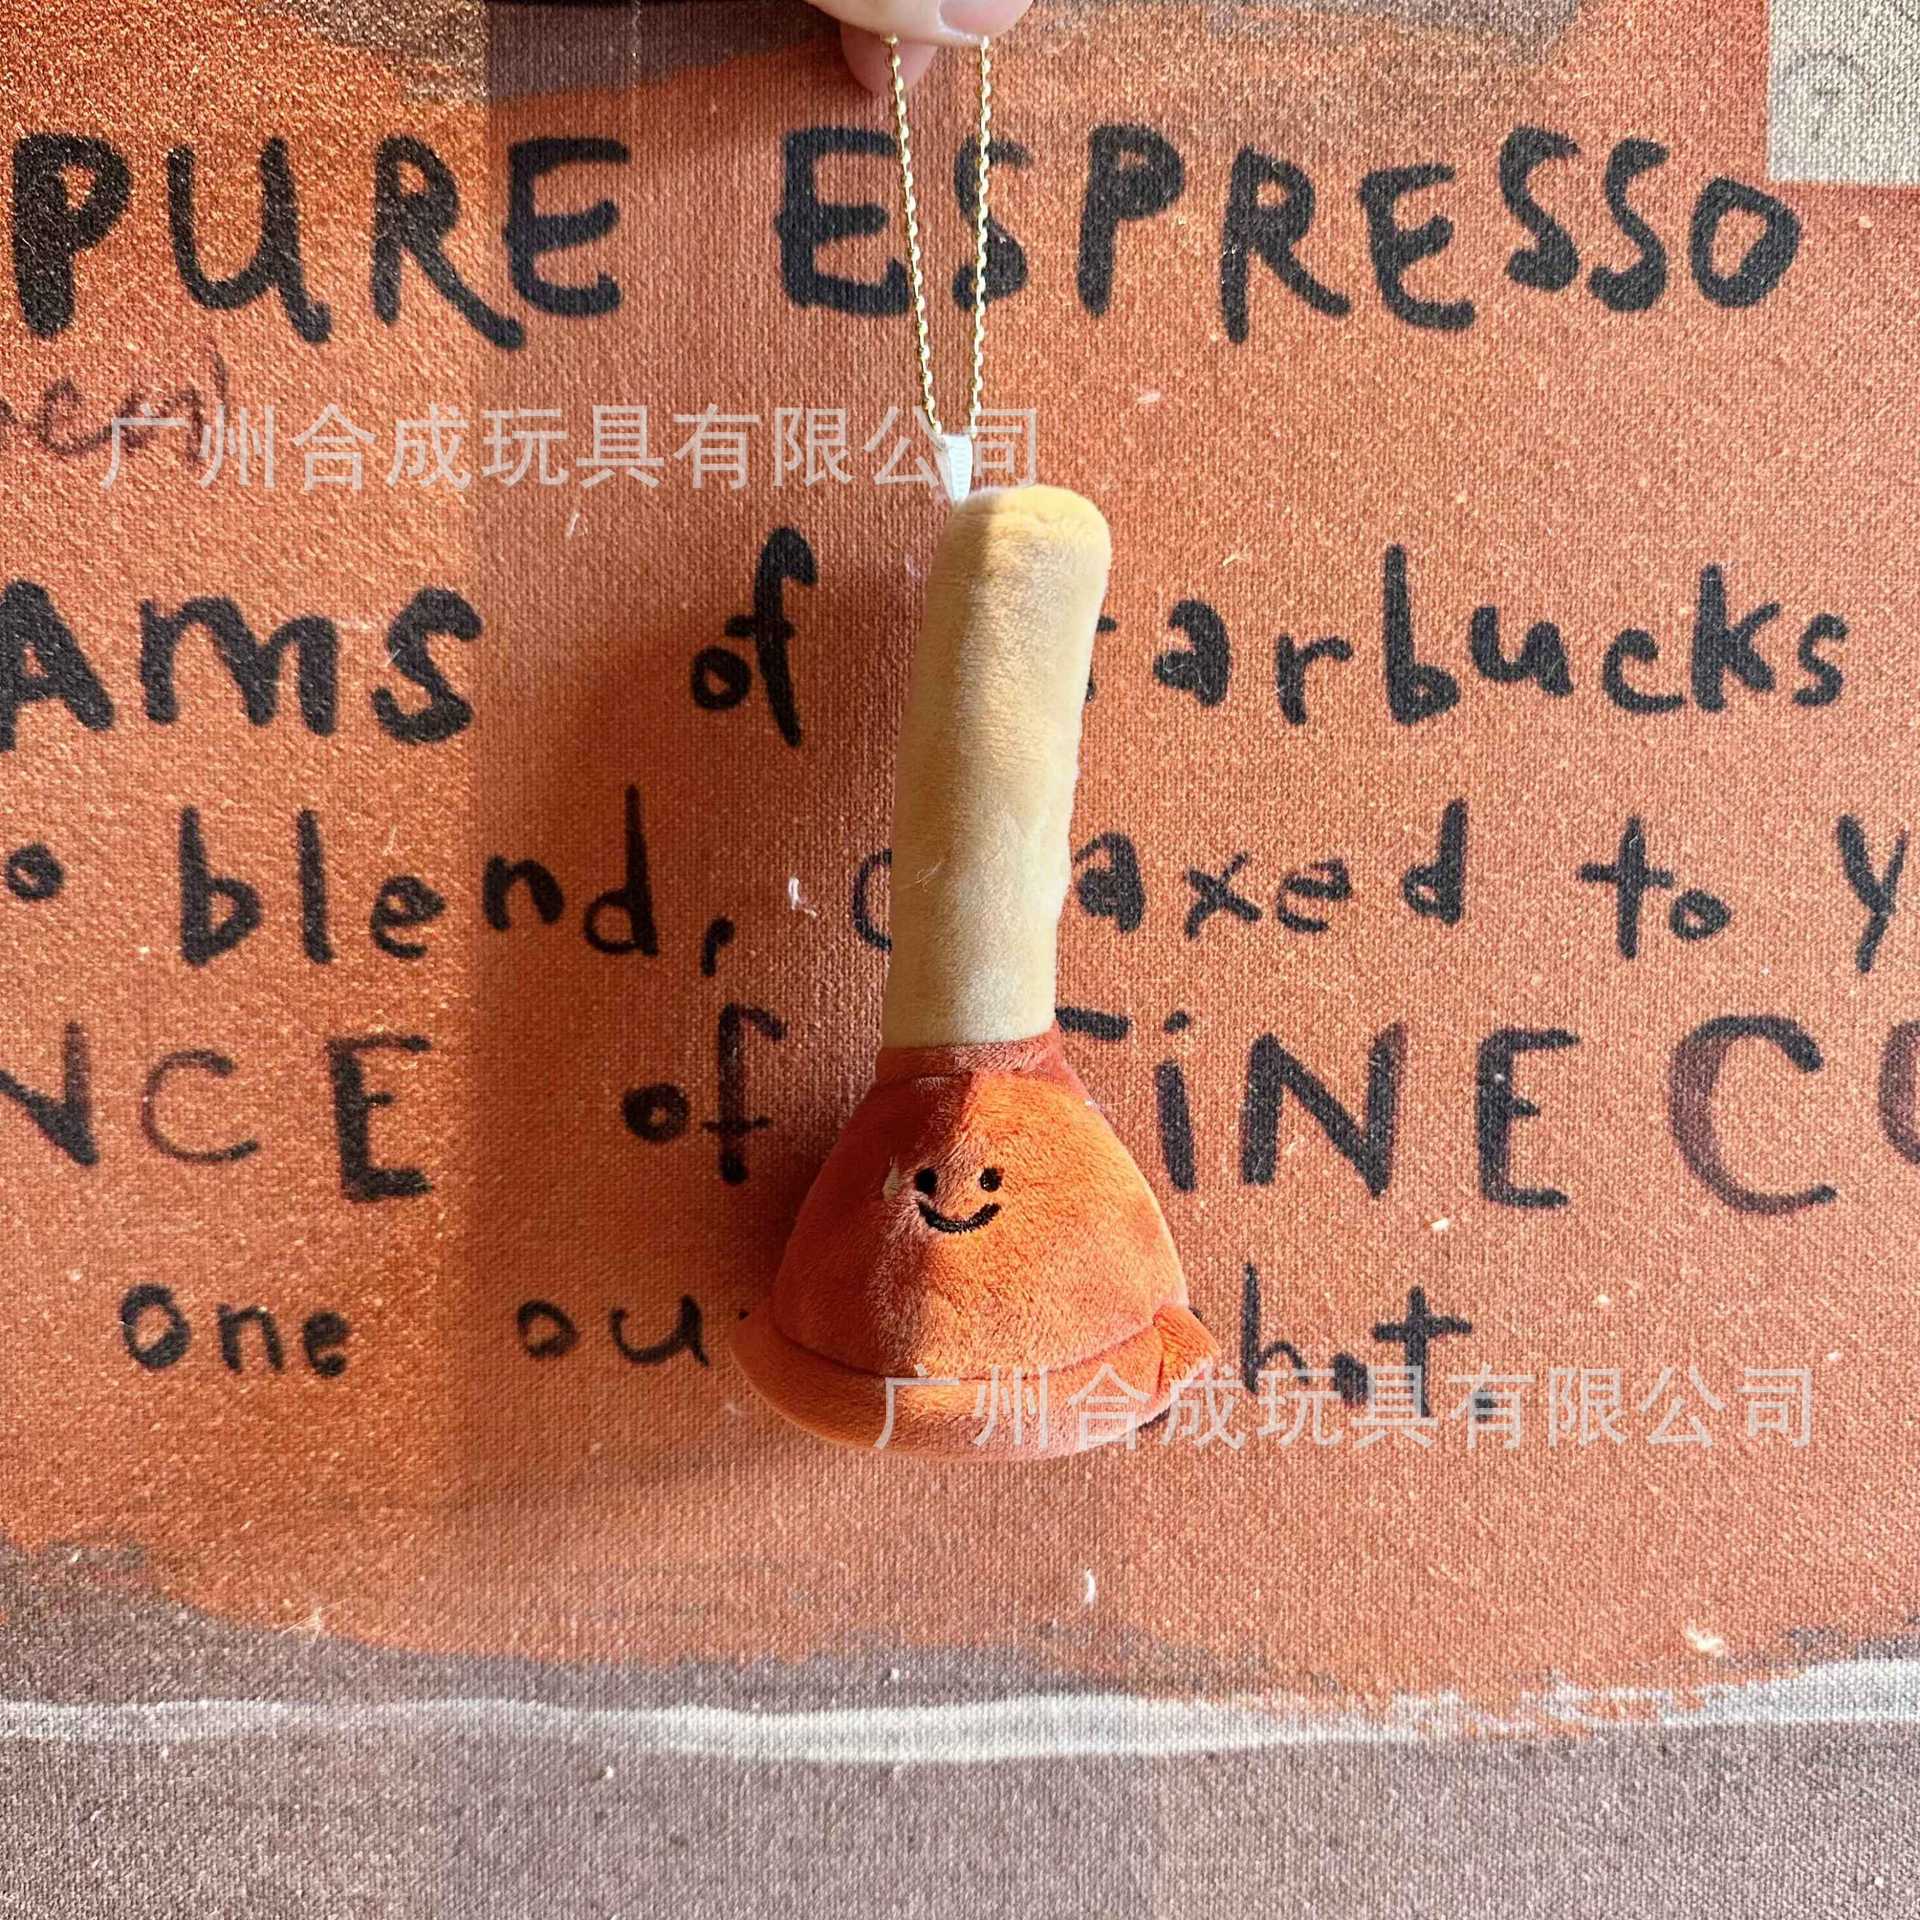 PURE ESPRESSO
广州合成玩具有限公司
AMS of tarbucks
o blend, axed to y
NCE of FINE CO
one ou hot
广州合成玩具有限公司